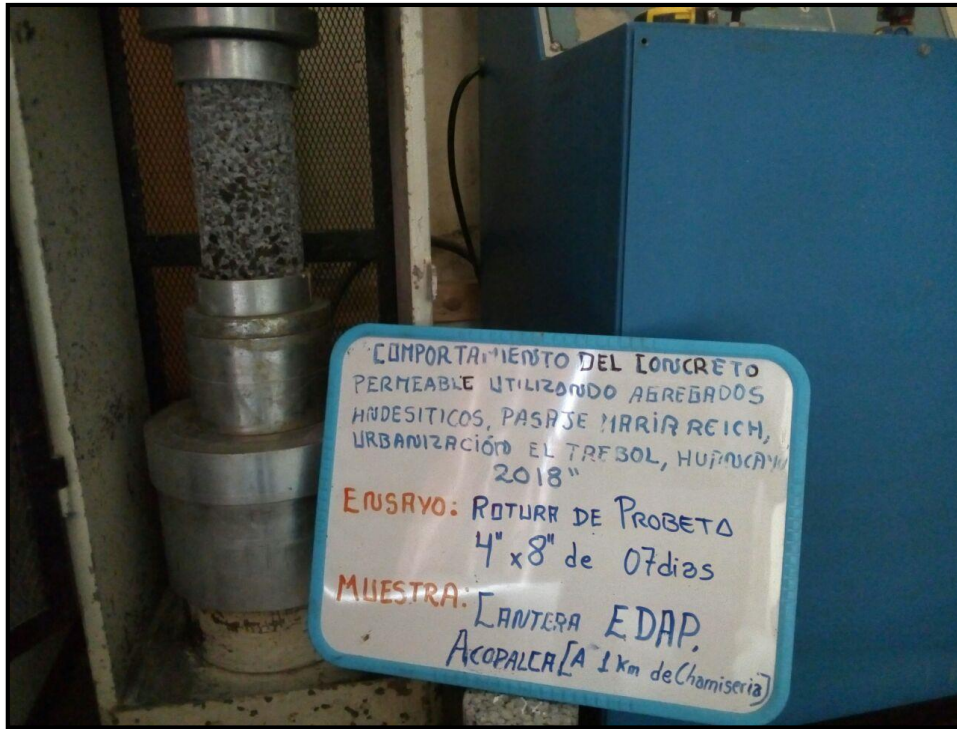 COMPORTAMIENTO DEL CONCRETO
PERMEABLE UTILIZANDO AGREGADOS
ANDESITICOS, PASAJE MARIA REICH,
URBANIZACIÓN EL TREBOL, HUANCAYO
2018"
ENSAYO: ROTURA DE PROBETA
4" x 8" de 07 dias
MUESTRA: CANTERA EDAP.
ACOPALCA [A 1 Km de Chamiseria]